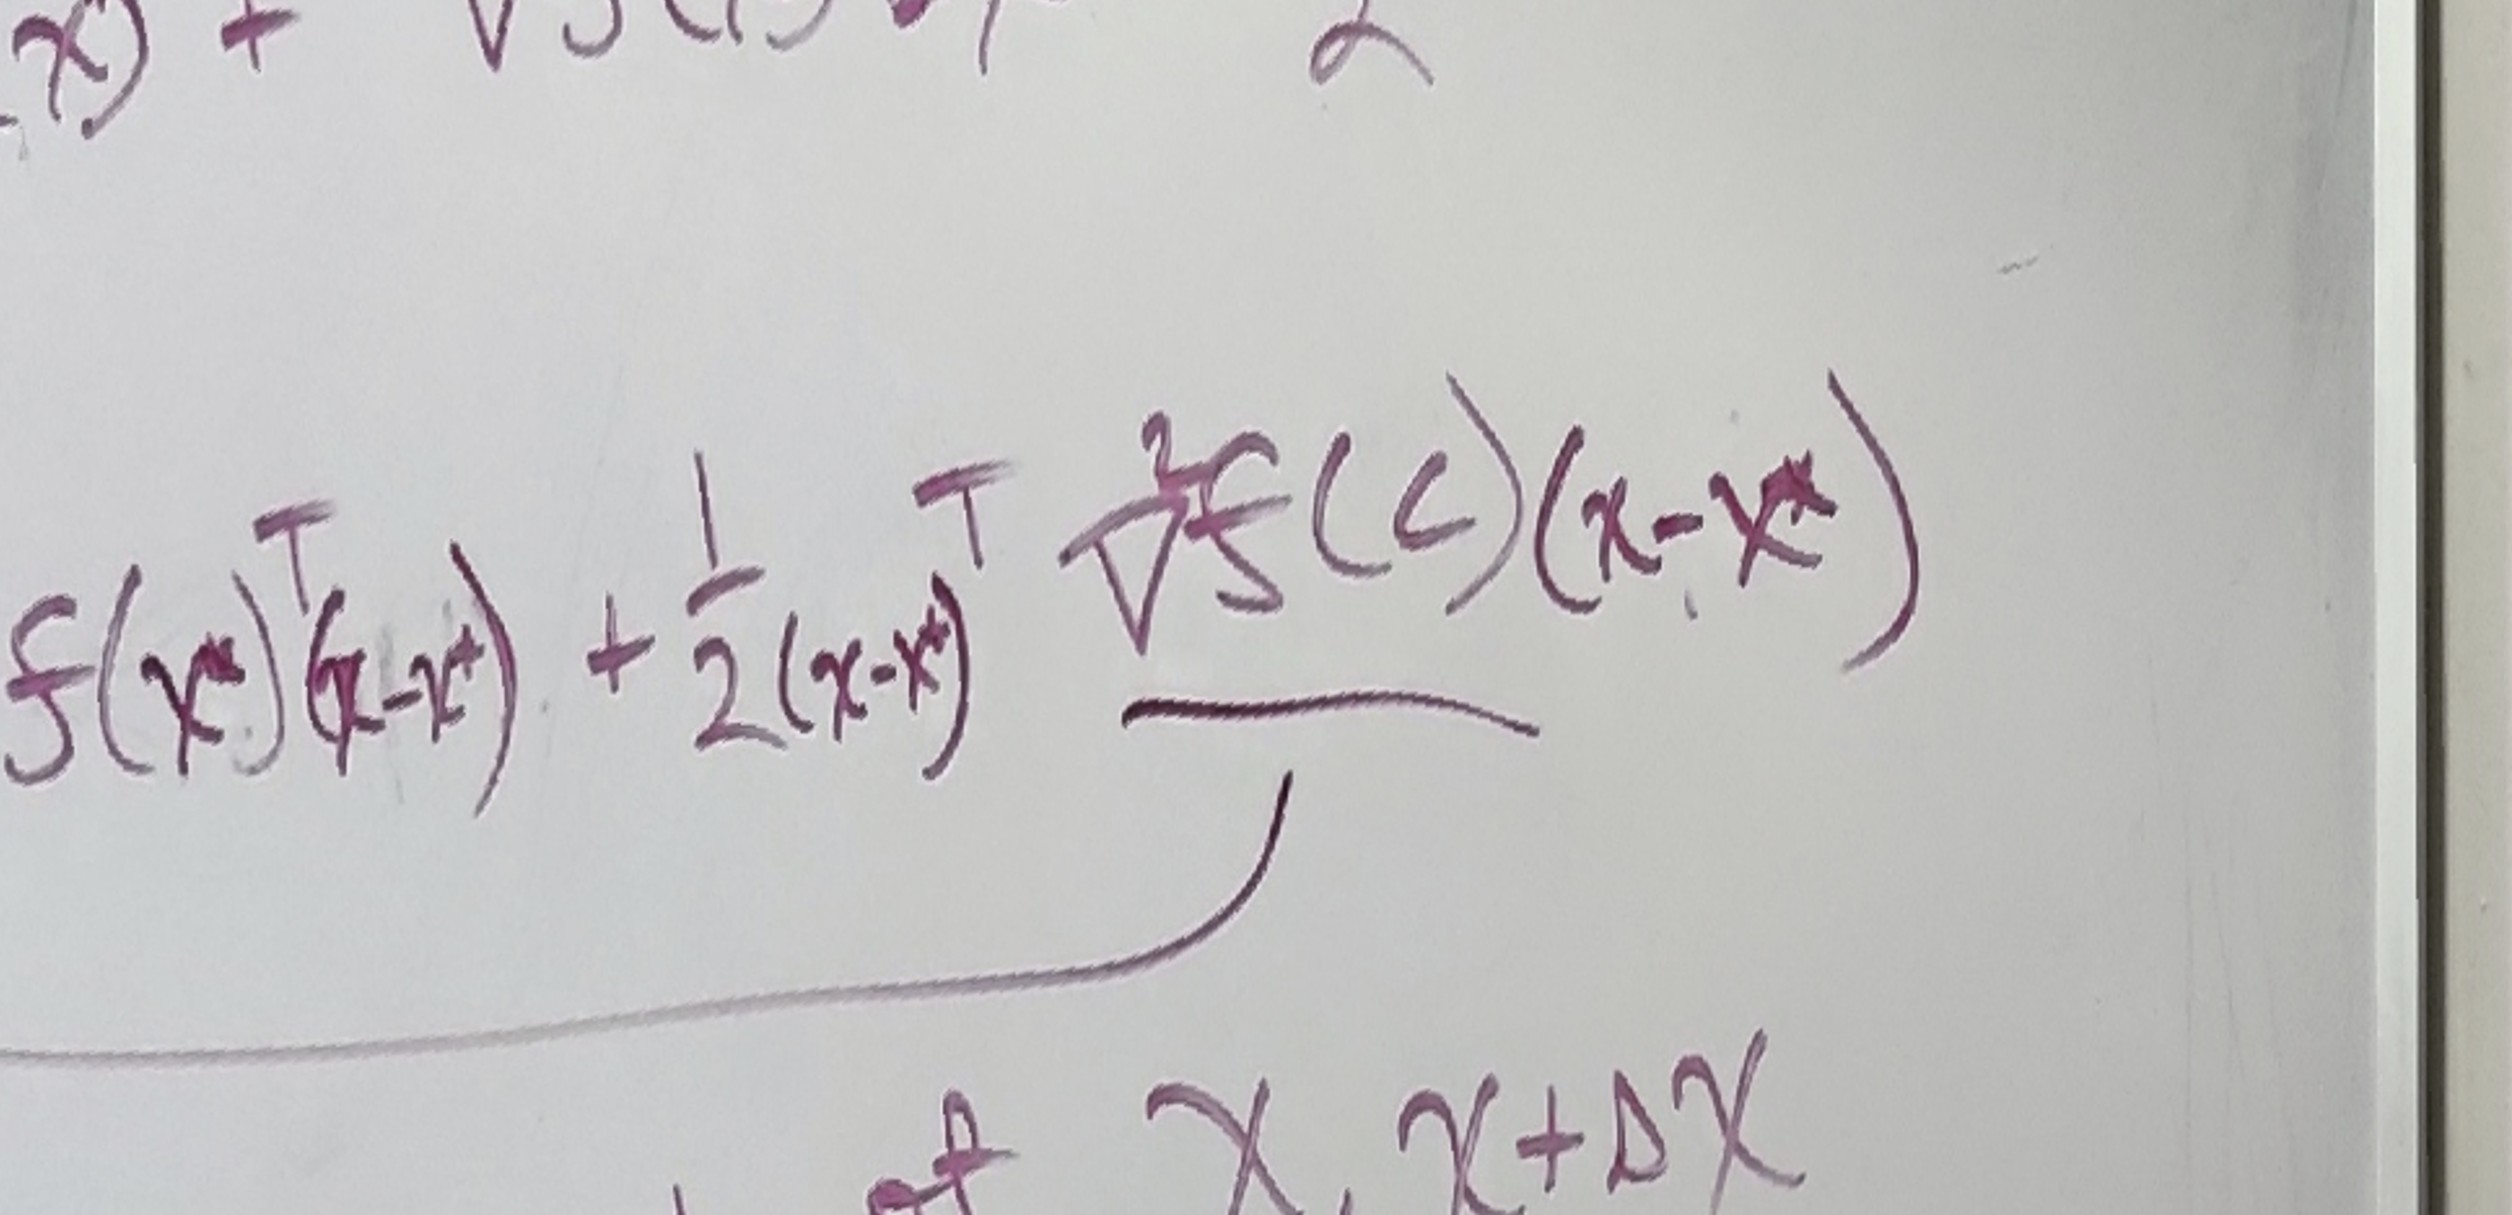 x) + ∇f(
f(x*)ᵀ(x-x*) + 1/2 (x-x*)ᵀ ∇²f(c)(x-x*)
x, x+Δx